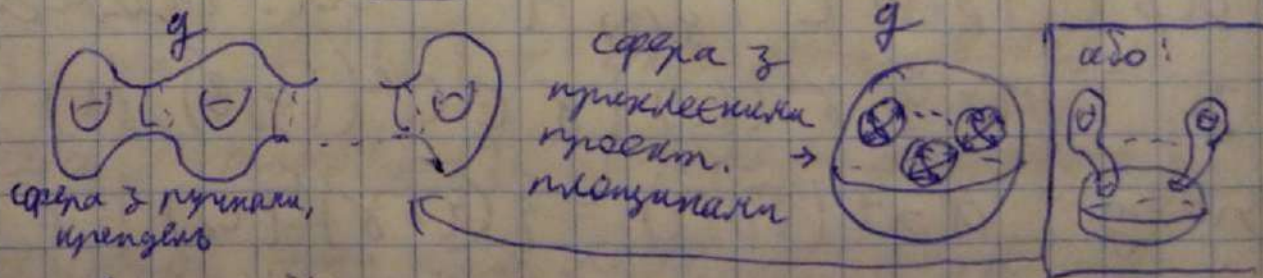 g
сфера з ручками,
крендель
сфера з
приклеєними
проект.
площинами
g
або: